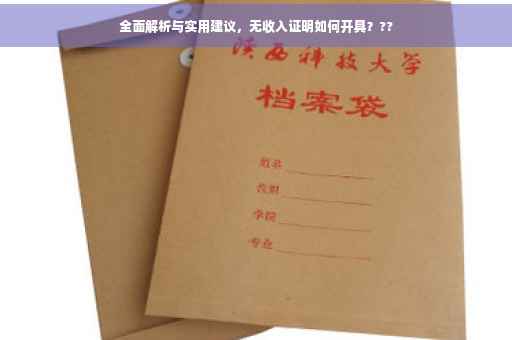 全面解析与实用建议，无收入证明如何开具？??
陕西科技大学
档案袋
姓名
学院
专业